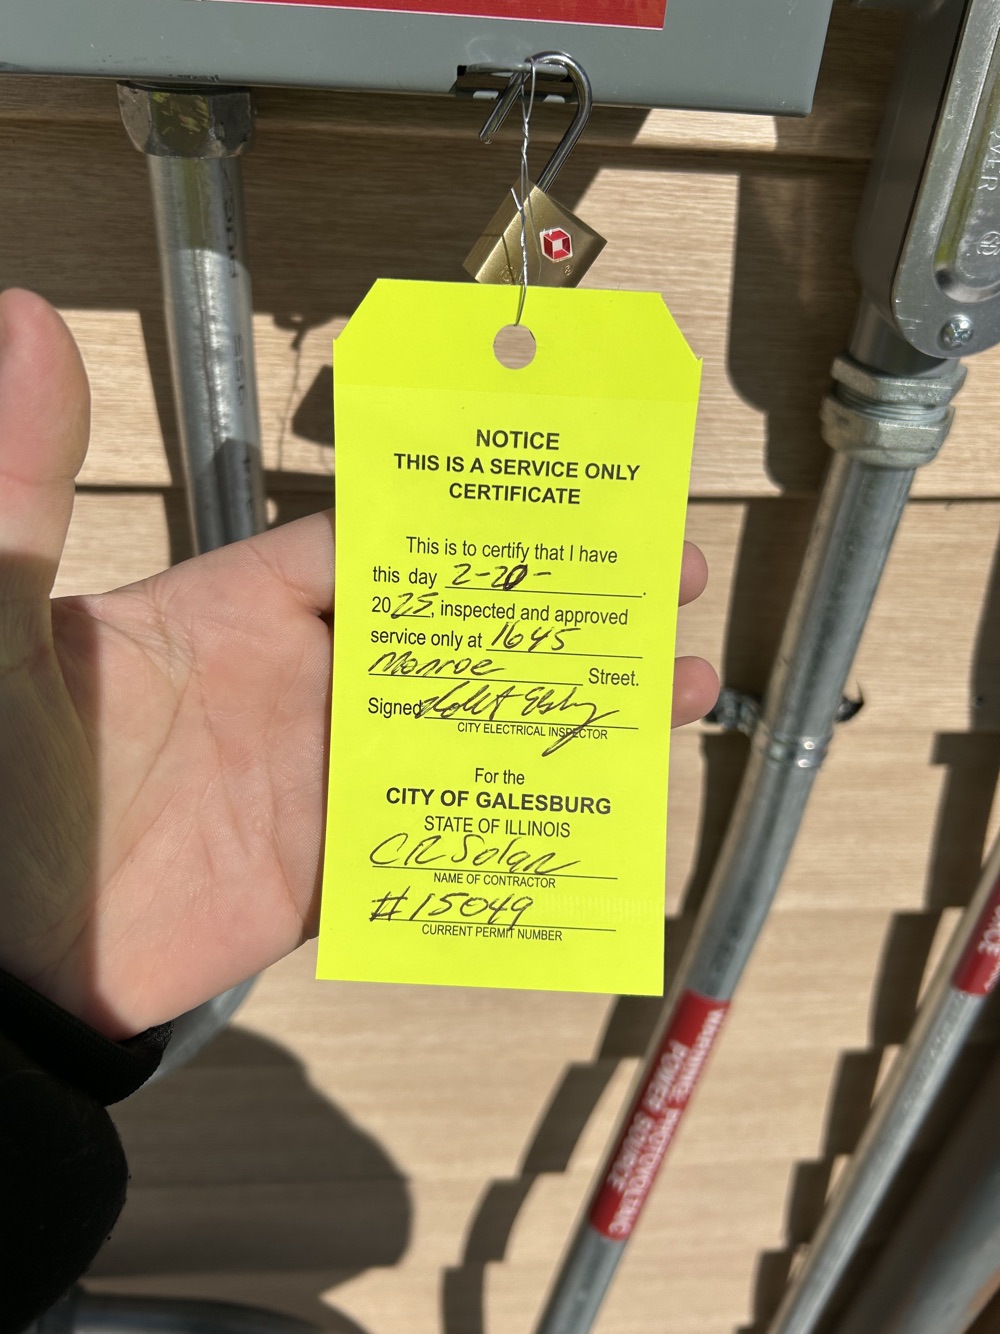 NOTICE
THIS IS A SERVICE ONLY
CERTIFICATE
This is to certify that I have
this day 2-20-.
2025, inspected and approved
service only at 1645
Monroe Street.
Signed
CITY ELECTRICAL INSPECTOR
For the
CITY OF GALESBURG
STATE OF ILLINOIS
CR Solar
NAME OF CONTRACTOR
#15049
CURRENT PERMIT NUMBER
WARNING: PHOTOVOLTAIC
POWER SOURCE